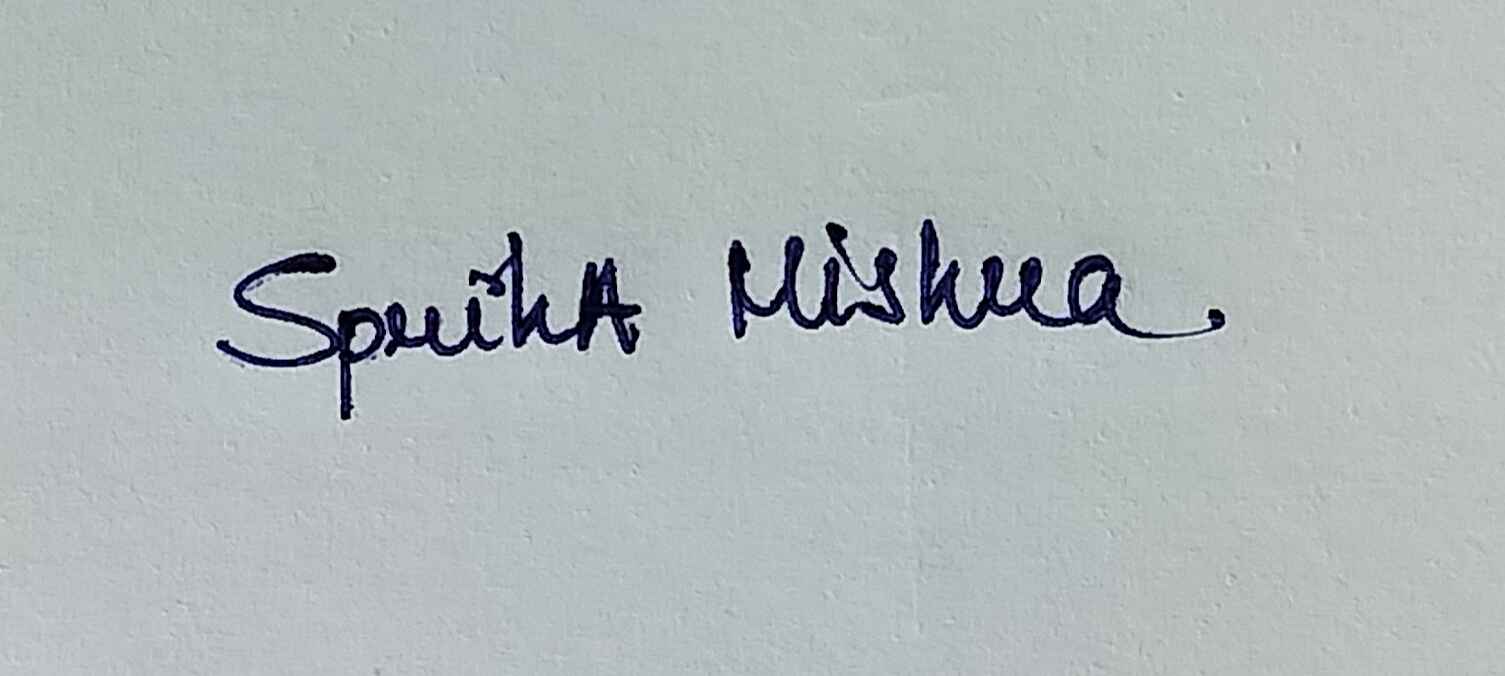 SprihA Mishra.